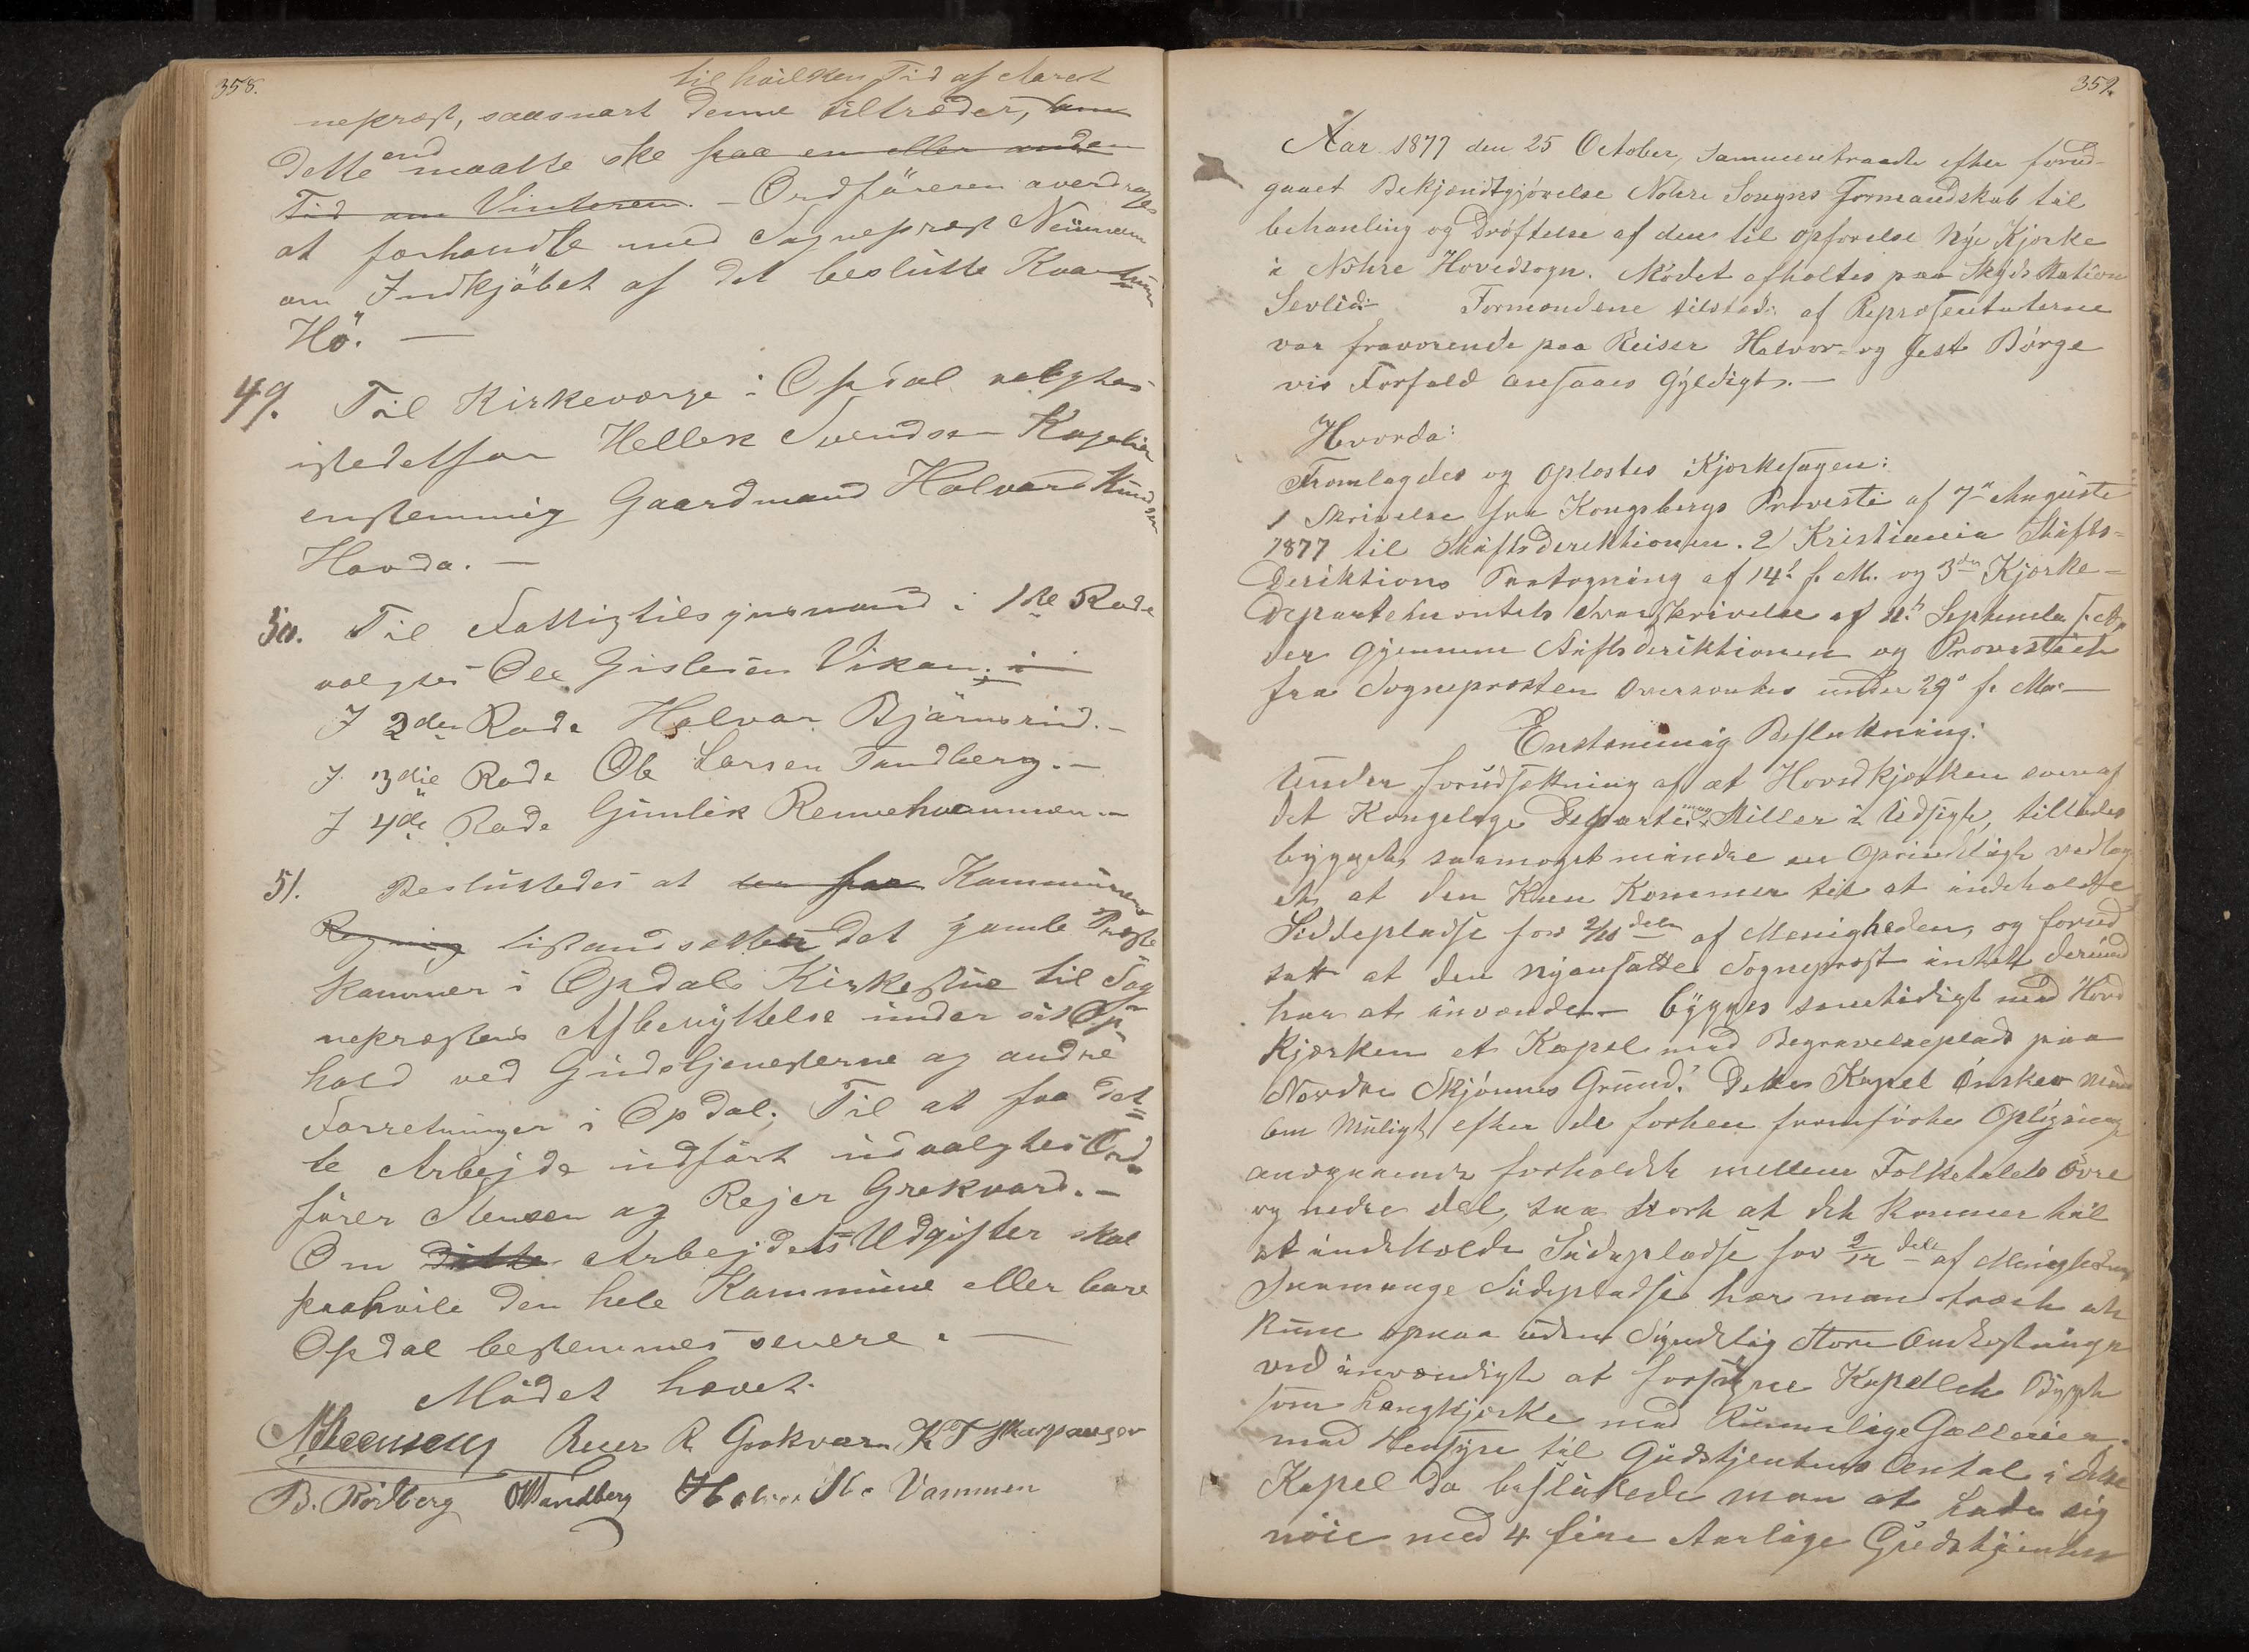 358.
til hvilken Tid af Aaret
nepræst, saasnart denne tiltræder, om
dette end maatte ske paa en eller anden
Tid om Vinteren. - Ordföreren averdrages
at forhandle med Sognepræst Neumann
om Indkjöbet af det beslutte Kvantum
Hö. —
49. Til Kirkeværge i Opdal valgtes
istedetfor Hellek Svendsen
enstemmig Gaardmand Halvard Knudsen
Hovda. —
50. Til Fattigtilsynsmand i 1ste Rode
valgtes Ole Gislesen Vikan. i
I 2den Rode Halvor Bjärnsrud. -
I 3die Rode Ole Larsen Tandberg. -
I 4de Rode Gunlik
51. Besluttedes at for Kommunens
Regning istandsætter det gamle Præste
kammer i Opdals Kirkestue til Sog
nepræstens Afbenyttelse under sit Op-
hold ved Gudstjenesterne og andre
Forretninger i Opdal. Til at faa det=
te Arbejde udfört udvalgtes Ord
förer Steensen og Rejer Grøkvard. -
Om dette Arbejdets Udgifter skal
paahvile den hele Kommune eller bare
Opdal bestemmes senere. —
Mödet hævet.
Steensen Reier R Grøkvam K T Skarpanger
B. Rödberg OTandberg Halvor Vammen
359.
Aar 1877 den 25 October, Sammentraadte efter forud-
gaaet Bekjendtgjörelse Nohre Songns Formandskab til
behanling og Dröftelse af den til opförelse Nye Kjerke
i Nohre Hovedsogn. Mödet afholtes paa Skyds Station
Sevlid: Formendene tilsted. af Repræsentaterne
var fraværende paa Reiser Halvor og Gest Börge
vis Forfald ansaaes Gyldigt. —
Hvorda:
Fremlagdes og Oplæstes Kjerkesagen:
1 Skrivelse fra Kongsbergs Provesti af 7de Auguste
1877 til Stiftsdirektionen. 2/ Kristiania Stifts-
Deriktions Paategning af 14d f. M. og 3die Kjerke-
Departementets Svarskrivelse af 11te September f. A.
der gjennem Stiftsderiktionen og Provstiet
fra Sognepræsten Oversentes under 29d f. M. —
Enstemmig Beslutning:
Under forudsættning af at Hovedkjerken som af
det Kongelige Departement Stiller i Udsigt, tillades
bygget saameget mindre en Oprindeligt vedtag
et, at den Kun Kommer til at indeholde
Siddepladse for 2/10 dele af Menigheden, og forud
sat at den nyansatte Sognepræst intet derimod
har at invende - bygges samtidigt med Hoved
Kjerken et Kapel med Begravelseplads paa
Nordre Skjönnes Grund. Dette Kapel Önskes
om Muligt efter de forhen fremförte Oplysninger
angaaende forholdet mellem Folketalets övre
og nedre del, saa stort at det Kommer til
at indeholde Siddepladse for 2/12 dele af Menigheden
Saamange Sidepladse har man troet at
Kune opnaa uden Synderlig Store Omkostninger
ved invendigt at forsyne Kapellet Bygget
som Langkjerke med Rummelige Gallerier.
med Hensyn til Gudstjenstens Antal i dette
Kapel da besluttede man at Lade sig
nöie med 4 fire Aarlige Gudstjenster